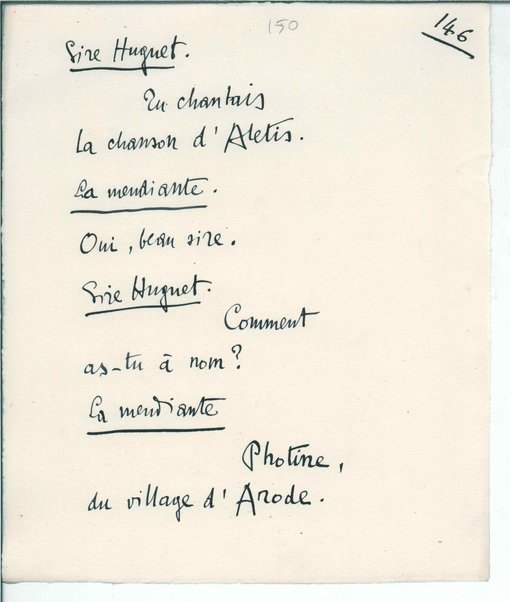 150
146
Sire Huguet.
Tu chantais
La chanson d'Aletis.
La mendiante.
Oui, beau sire.
Sire Huguet.
Comment
as-tu à nom?
La mendiante
Photine,
du village d'Arode.